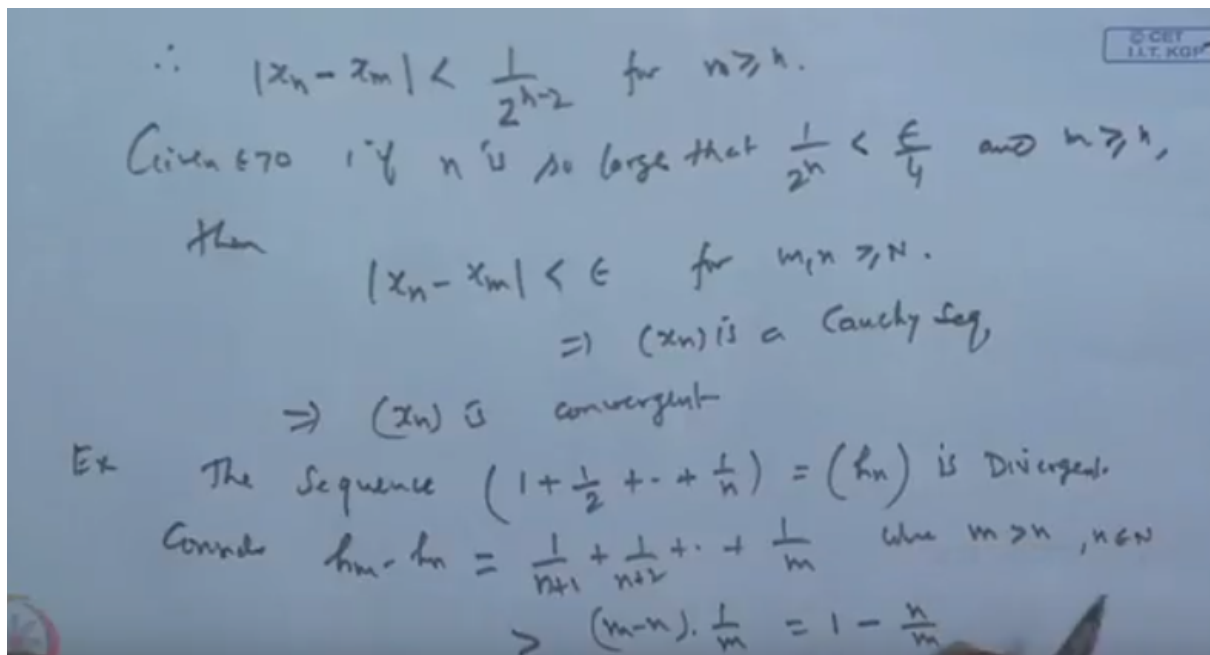 © CET
I.I.T. KGP
∴ |xₙ - xₘ| < 1/2ⁿ⁻² for m ≥ n.
Given ε>0 if n is so large that 1/2ⁿ < ε/4 and m ≥ n,
then
|xₙ - xₘ| < ε for m,n ≥ N.
⇒ (xₙ) is a Cauchy Seq,
⇒ (xₙ) is convergent
Ex The Sequence (1 + 1/2 + ·· + 1/n) = (hₙ) is Divergent.
Consider hₘ - hₙ = 1/(n+1) + 1/(n+2) + ·· + 1/m where m > n, n ∈ N
> (m-n). 1/m = 1 - n/m